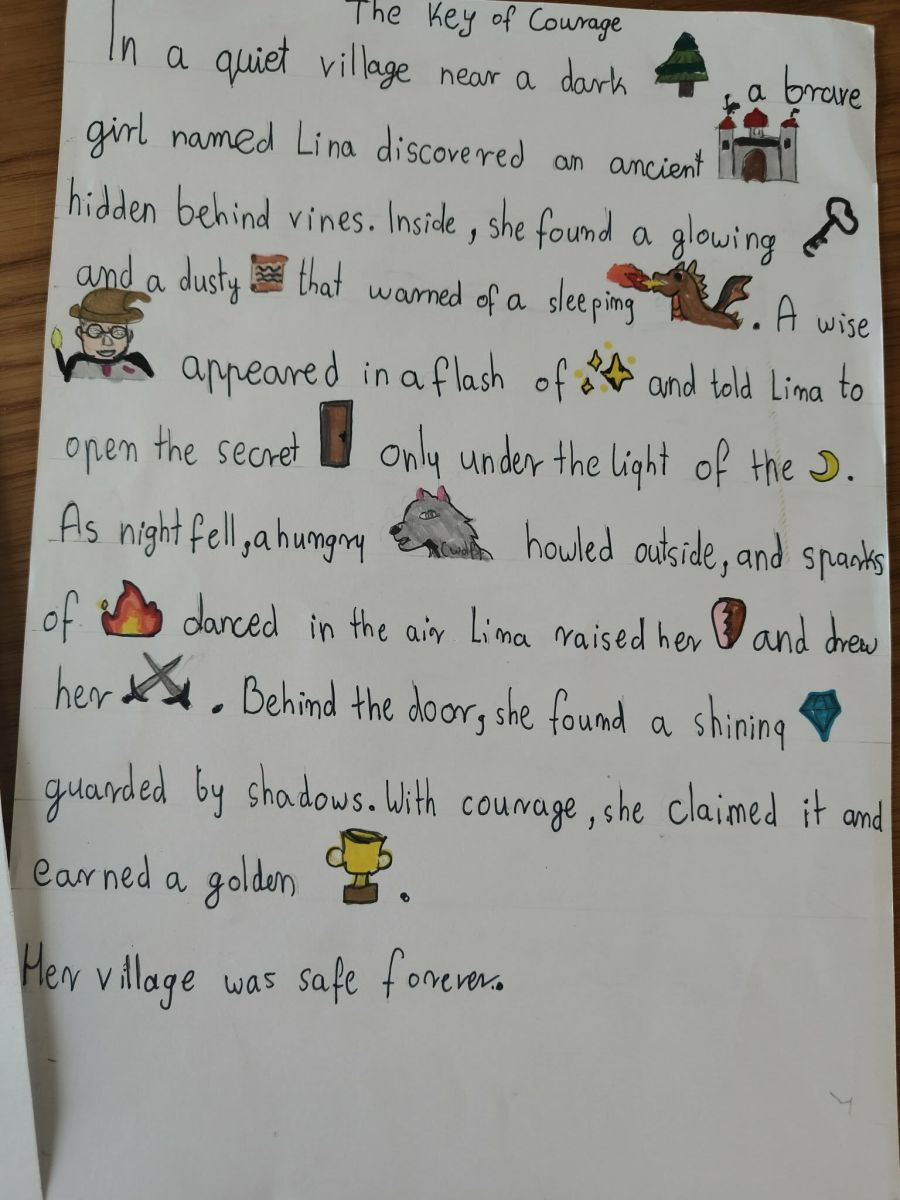 The Key of Courage
In a quiet village near a dark , a brave
girl named Lina discovered an ancient
hidden behind vines. Inside, she found a glowing
and a dusty that warned of a sleeping . A wise
appeared in a flash of and told Lina to
open the secret only under the light of the .
As night fell, a hungry howled outside, and sparks
of danced in the air Lina raised her and drew
her . Behind the door, she found a shining
guarded by shadows. With courage, she claimed it and
earned a golden .
Her village was safe forever.